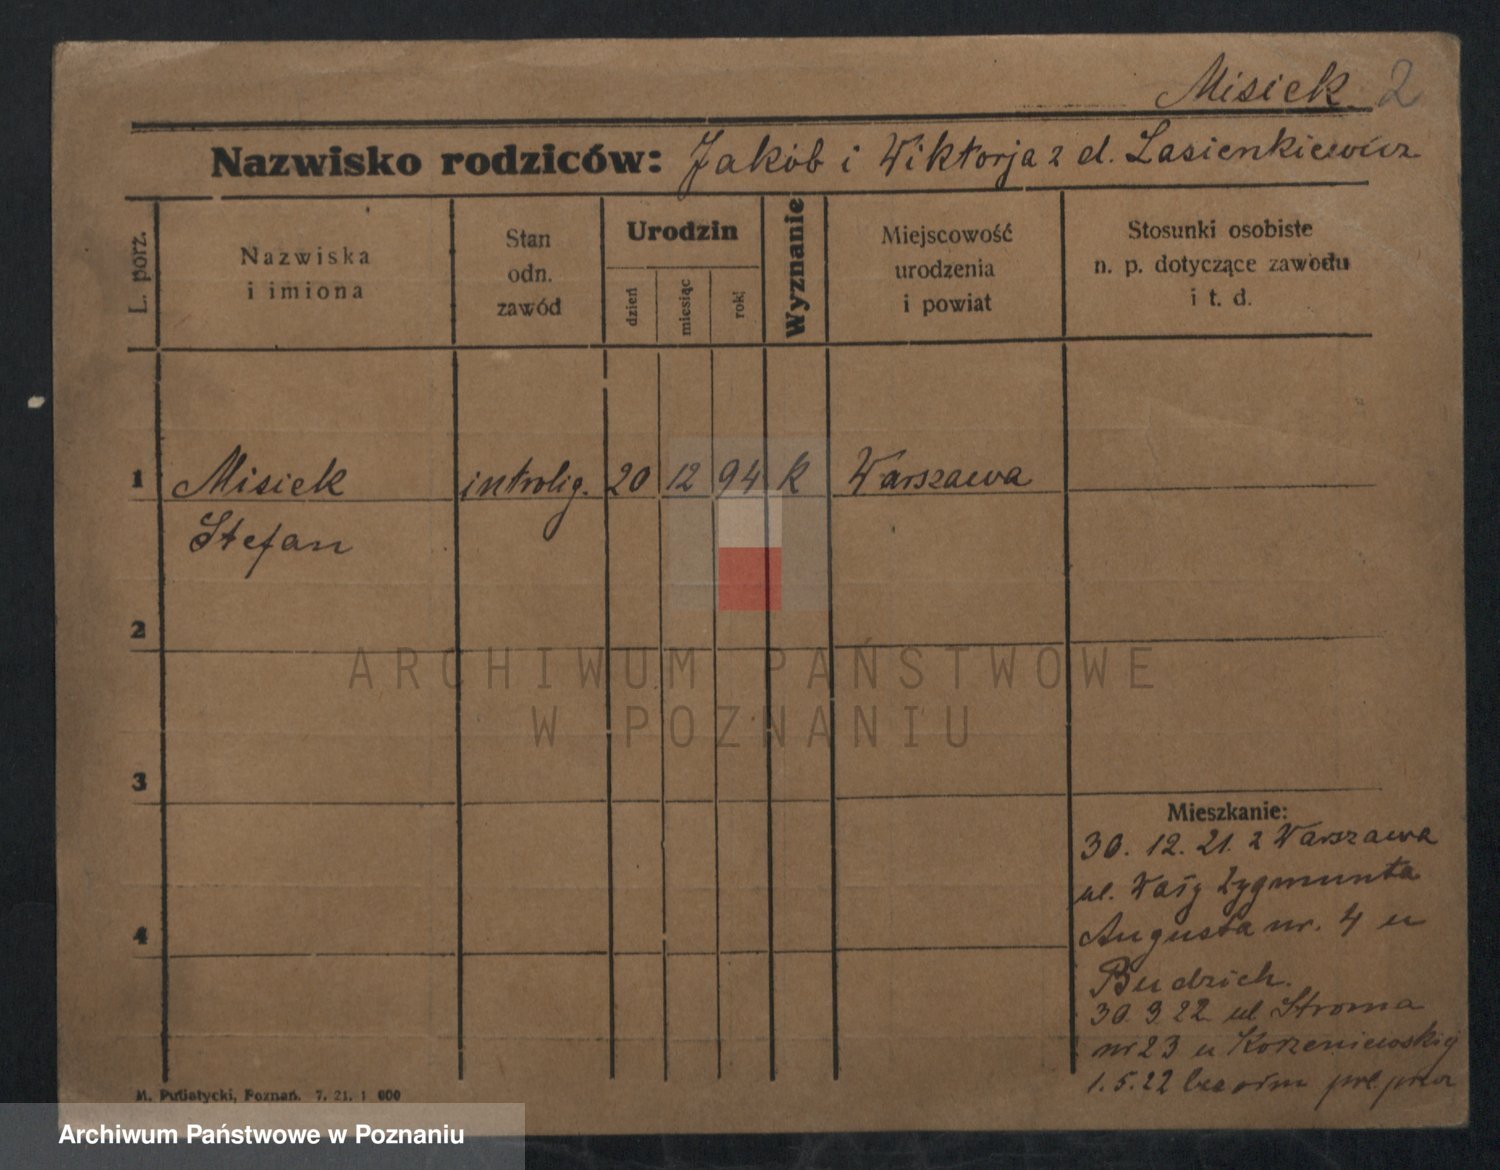 Misiek 2
Nazwisko rodziców: Jakób i Wiktorja z d. Lasienkiewicz
L. porz.
Nazwiska
i imiona
Stan
odn.
zawód
Urodzin
dzień
miesiąc
rok
Wyznanie
Miejscowość
urodzenia
i powiat
Stosunki osobiste
n. p. dotyczące zawodu
i t. d.
1 Misiek introlig. 20 12 94 k Warszawa
Stefan
2
ARCHIWUM PAŃSTWOWE
W POZNANIU
3
Mieszkanie:
30. 12. 21. z Warszawa
ul. Wały Zygmunta
4
Augusta nr. 4 u
Budzich.
30. 3. 22 ul Stroma
nr 23 u Korzeniewskiej
1. 5. 22
M. Putiatycki, Poznań. 7. 21. 1 000
Archiwum Państwowe w Poznaniu